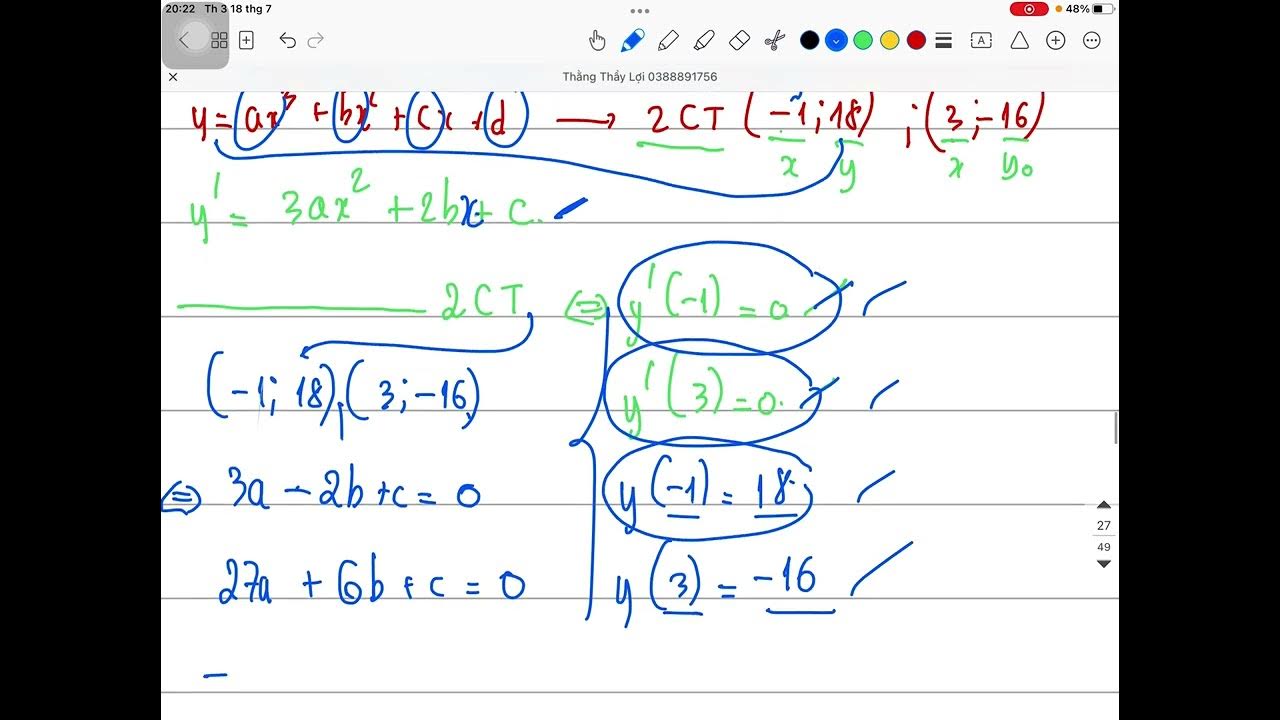 20:22 Th 3 18 thg 7
48%
A
Thằng Thầy Lợi 0388891756
y = ax³ + bx² + cx + d → 2CT (-1; 18) ; (3; -16)
x y x y₀
y' = 3ax² + 2bx + c.
2CT ⇔ y'(-1) = 0
y'(3) = 0.
(-1; 18), (3; -16)
⇔ 3a - 2b + c = 0
y(-1) = 18.
27a + 6b + c = 0
y(3) = -16
27
49
-